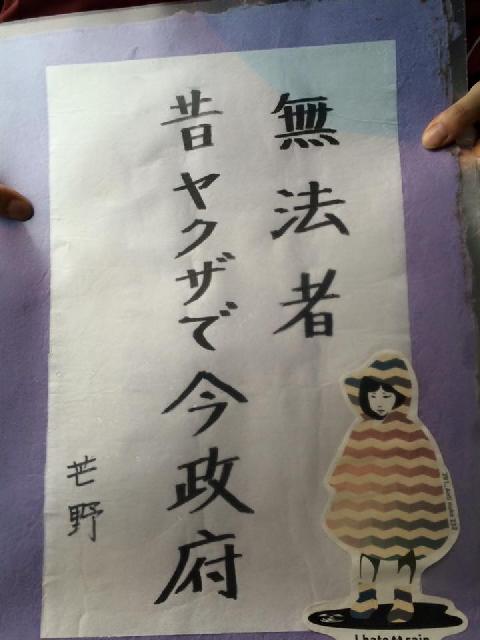 無法者
昔ヤクザで今政府
芒野
I hate rain